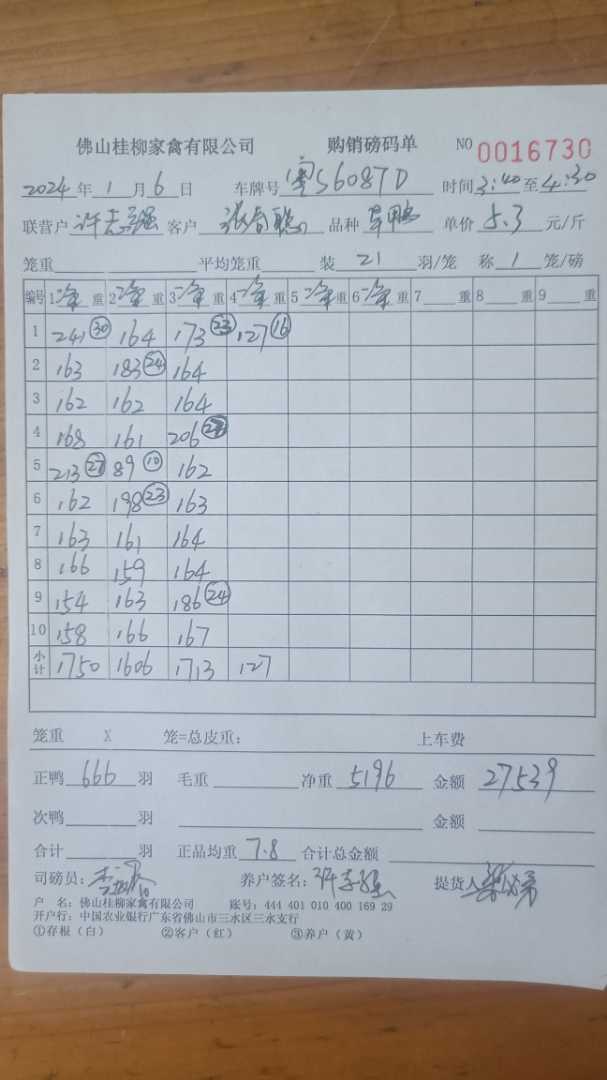 佛山桂柳家禽有限公司 购销磅码单 NO 0016730
2024年1月6日 车牌号 粤S6087D 时间3:40至4:30
联营户 许志强 客户 张春聪 品种 草鸭 单价 5.3 元/斤
笼重 平均笼重 装 21 羽/笼 称 1 笼/磅
编号 1 净重 2 净重 3 净重 4 净重 5 净重 6 净重 7 重 8 重 9 重
1 241 30 164 173 23 127 16
2 163 183 24 164
3 162 162 164
4 168 161 206
5 213 27 89 10 162
6 162 198 23 163
7 163 161 164
8 166 159 164
9 154 163 186 24
10 158 166 167
小计 1750 1606 1713 127
笼重 X 笼=总皮重: 上车费
正鸭 666 羽 毛重 净重 5196 金额 27539
次鸭 羽 金额
合计 羽 正品均重 7.8 合计总金额
司磅员: 养户签名: 许志强 提货人
户 名: 佛山桂柳家禽有限公司 账号: 444 401 010 400 169 29
开户行: 中国农业银行广东省佛山市三水区三水支行
①存根(白) ②客户(红) ③养户(黄)